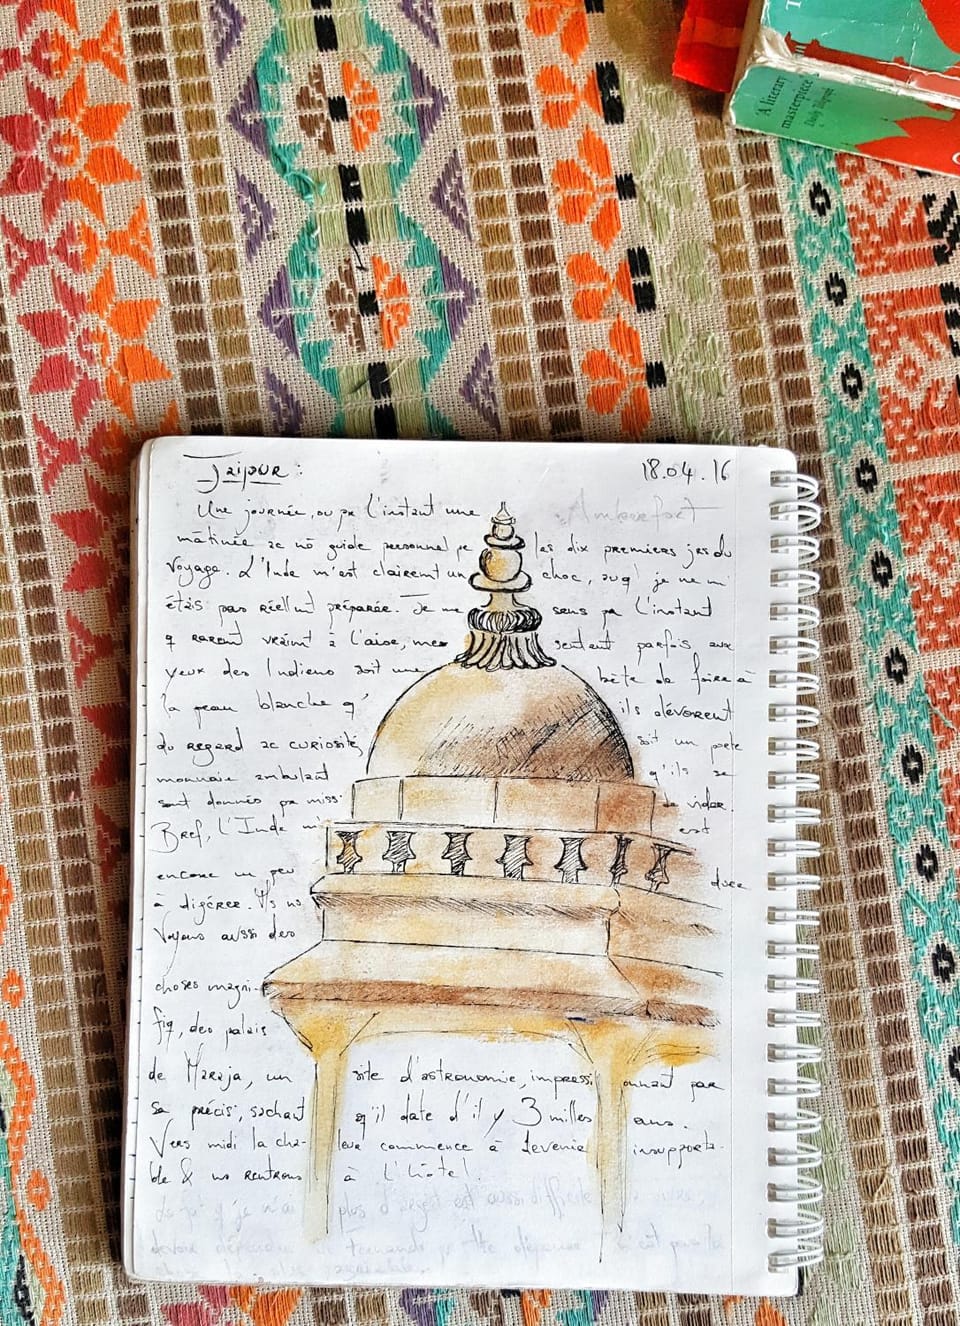 T
'A literary
masterpiece'
Daily Telegraph
Jaipur : 18.04.16
Une journée, ou pr l'instant une Amberfort
mâtinée ac nô guide personnel pr les dix premiers jrs du
voyage. L'Inde m'est clairemt un choc, auql je ne m'
étais pas réellmt préparée. Je me sens pr l'instant
q raremt vraimt à l'aise, me sentant parfois aux
yeux des Indiens soit une bête de foire à
la peau blanche q' ils dévorent
du regard ac curiosité, soit un porte
monnaie ambulant q'ils se
sont donnés pr miss° de vider.
Bref, l'Inde m' est
encore un peu dure
à digérer. Ns
Voyons aussi des
choses magni-
fiq, des palais
de Maraja, un site d'astronomie, impressionnant par
sa précis°, sachant q'il date d'il y 3 milles ans.
Vers midi la cha- leur commence à devenir insupporta-
ble & ns rentrons à l'hôtel
plus d'argent est aussi difficile